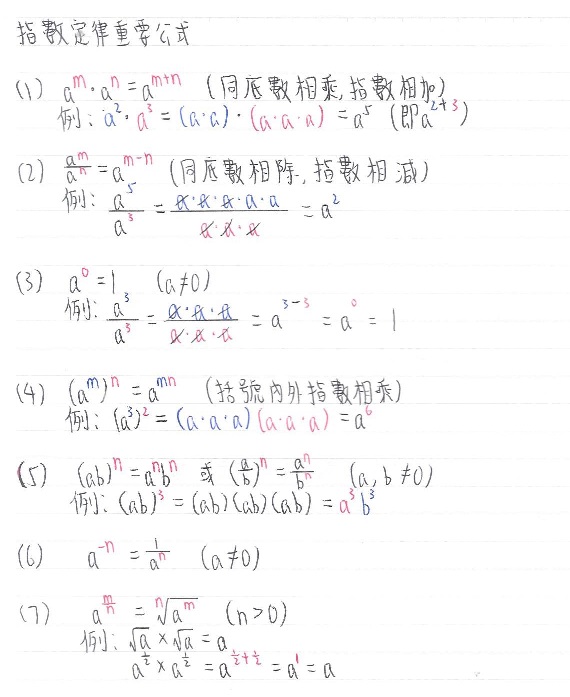 指數定律重要公式
(1) a^m · a^n = a^{m+n} (同底數相乘, 指數相加)
例: a² · a³ = (a·a) · (a·a·a) = a⁵ (即 a^{2+3})
(2) a^m/a^n = a^{m-n} (同底數相除, 指數相減)
例: a⁵/a³ = a·a·a·a·a/a·a·a = a²
(3) a⁰ = 1 (a≠0)
例: a³/a³ = a·a·a/a·a·a = a^{3-3} = a⁰ = 1
(4) (a^m)^n = a^{mn} (括號內外指數相乘)
例: (a³)² = (a·a·a)(a·a·a) = a⁶
(5) (ab)^n = a^n b^n 或 (a/b)^n = a^n/b^n (a, b ≠0)
例: (ab)³ = (ab)(ab)(ab) = a³b³
(6) a^{-n} = 1/a^n (a≠0)
(7) a^{m/n} = ⁿ√a^m (n>0)
例: √a × √a = a
a^{1/2} × a^{1/2} = a^{1/2+1/2} = a¹ = a